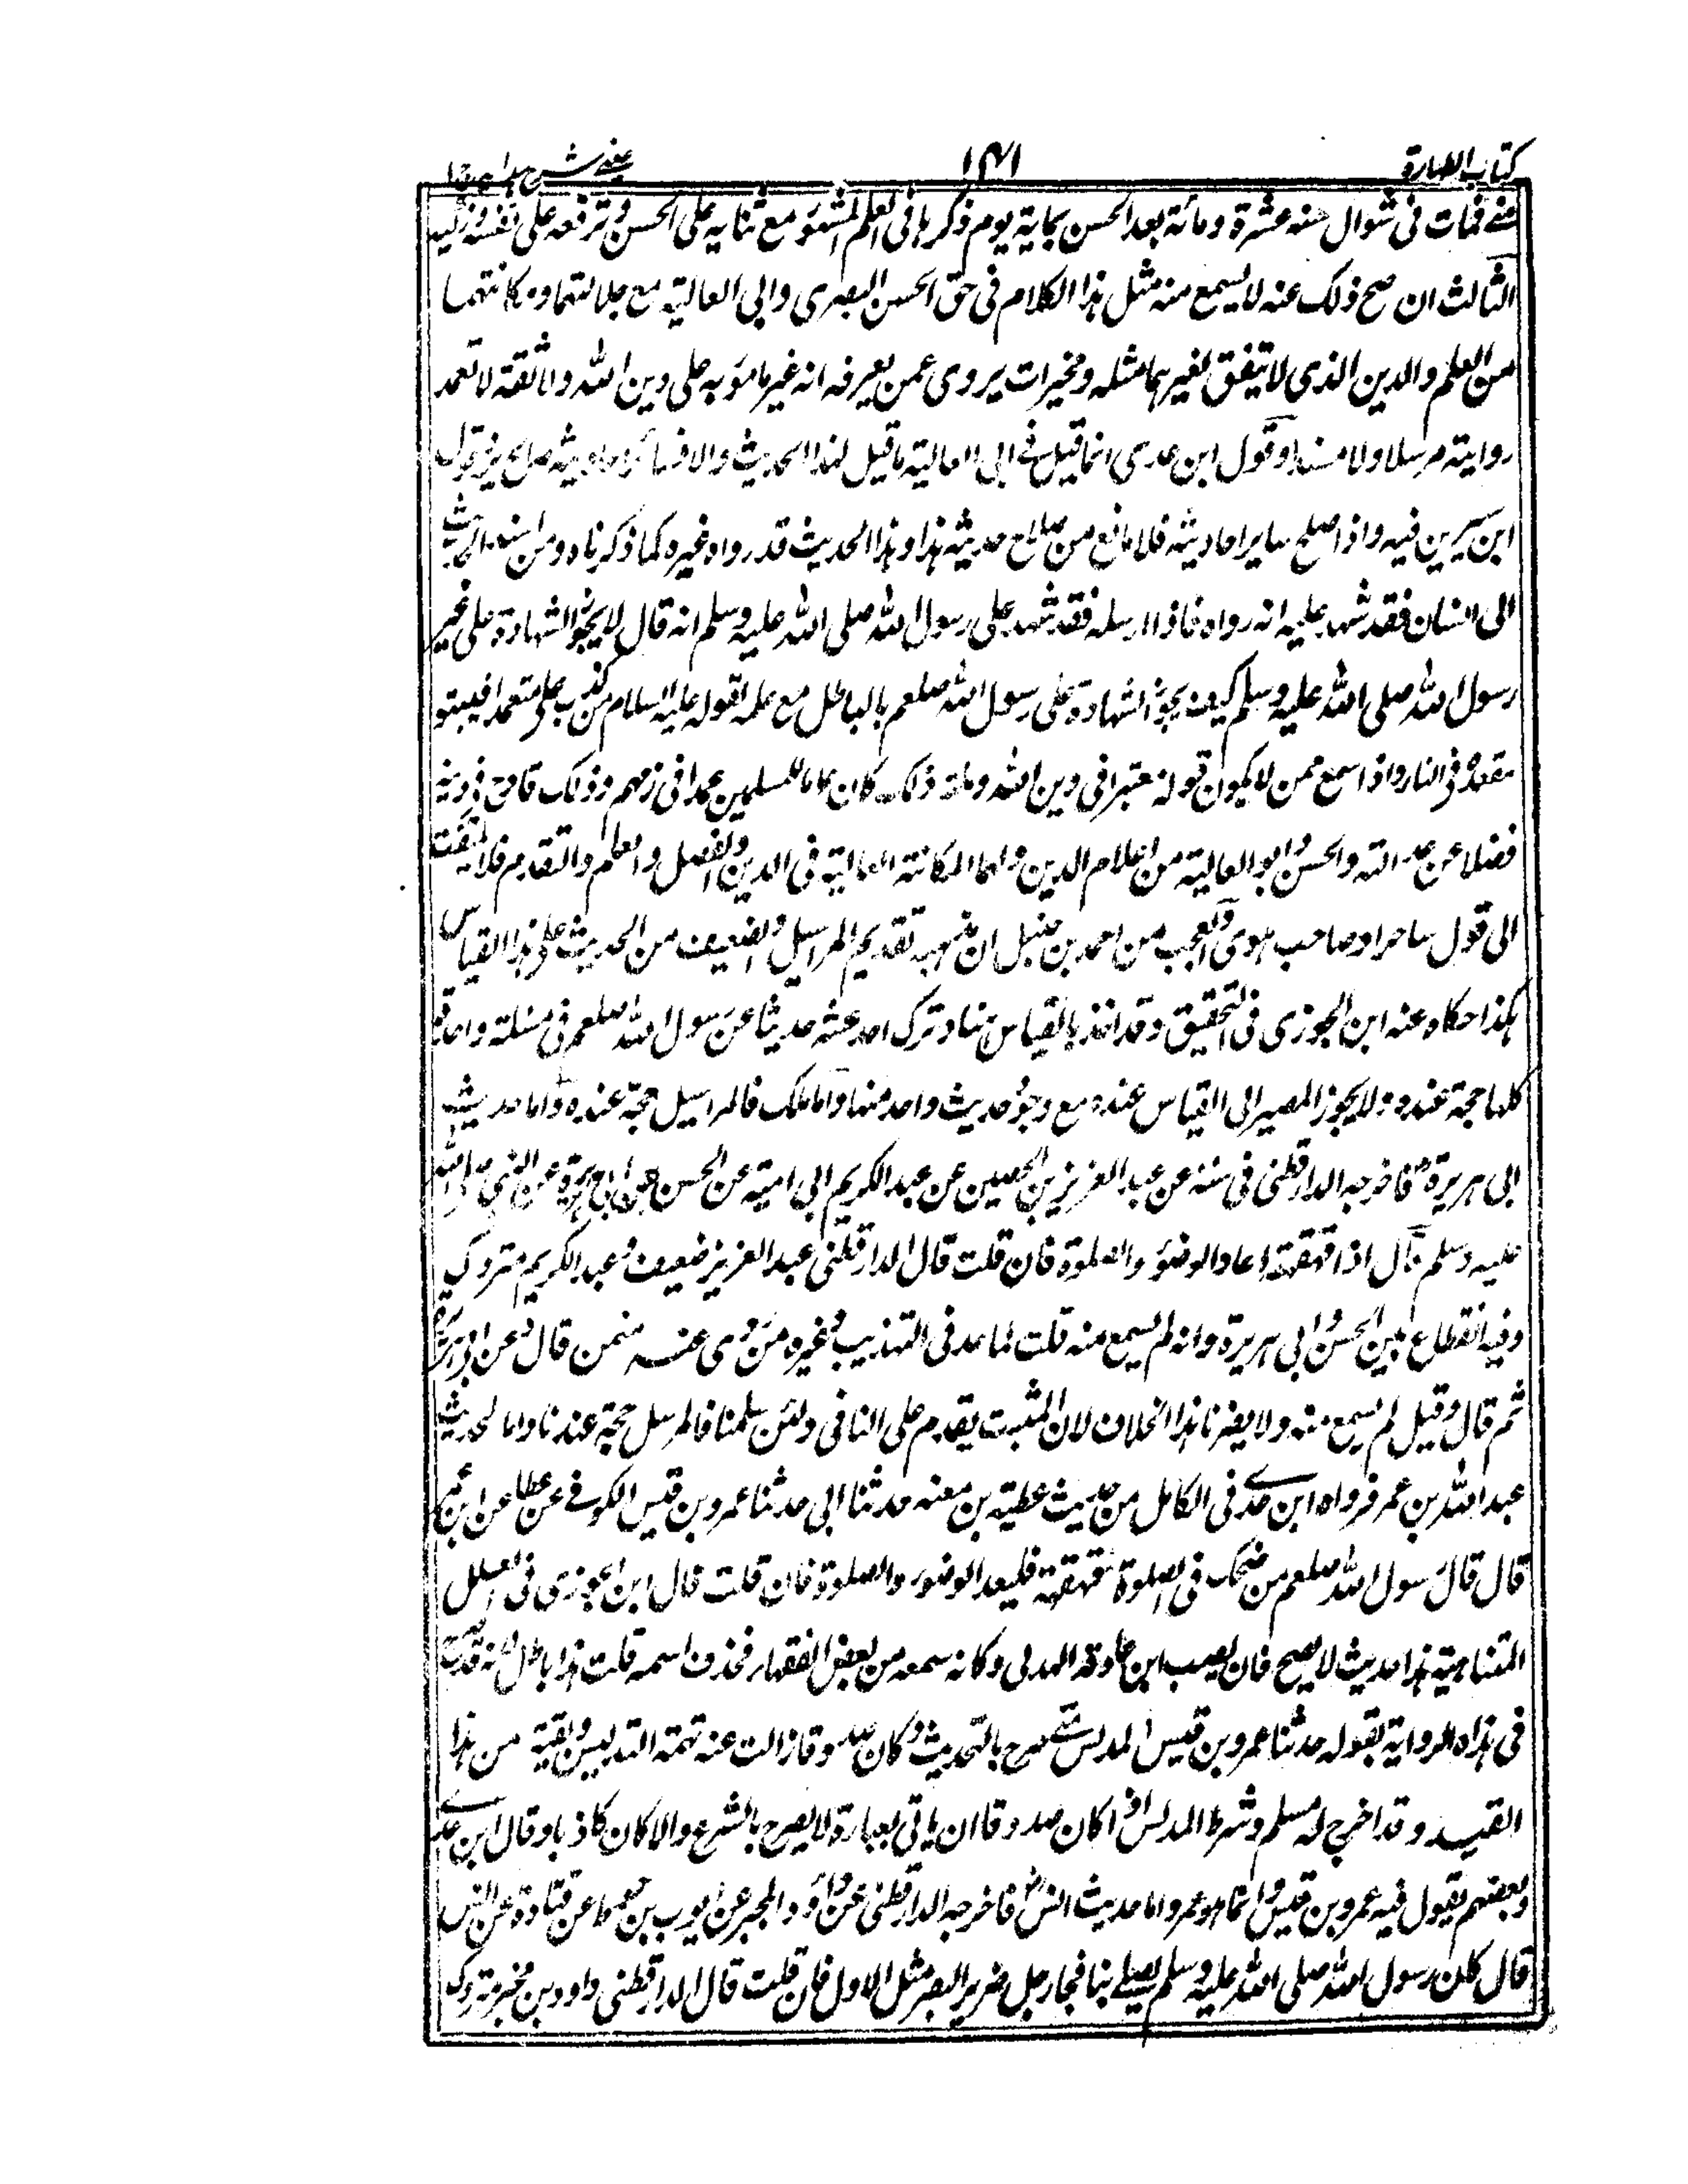 كتاب الطهارة ١٤١ عينى شرح هداية ج١
فمات فى شوال سنة عشرة ومائة بعد الحسن بماية يوم ذكرها فى العلم المشهور مع ثنايه على الحسن وترفعه على نفسه
الثالث ان صح ذلك عنه لا يسمع منه مثل هذا الكلام فى حق الحسن البصرى وابى العالية مع جلالتهما ومكانتهما
من العلم والدين الذى لا يتفق لغيرهما مثله ومخيرات يروى عمن يعرفه انه غير مامون به على دين الله ولا ثقة لا تعمد
روايته مرسلا ولا مسندا وقول ابن عدى انما قيل فى ابى العالية ما قيل لهذا الحديث والا فسائر احاديثه صالح قول
ابن سيرين فيه واذا صلح ساير احاديثه فلا مانع من صلاح حديثه هذا وهذا الحديث قد رواه غيره كما ذكرناه ومن اسند الحديث
الى انسان فقد شهد عليه انه رواه فاذا ارسله فقد شهد على رسول الله صلى الله عليه وسلم انه قال لا يجوز الشهادة على غير
رسول الله صلى الله عليه وسلم كيف يجوز الشهادة على رسول الله صلعم بالباطل مع علمه لقوله عليه السلام من كذب على متعمدا فليتبو
مقعده فى النار واذا سمع ممن لا يكون قوله معتبرا فى دين الله ذلك كان للمسلمين عمدا فى وذلك قادح فى دينه
فضلا عن عدالته والحسن وابو العالية من اعلام الدين ولهما المكانة العالية فى الدين والفضل والعلم والتقدم فلا يلتفت
الى قول ساحر او صاحب هوى والعجب من احمد بن حنبل ان مذهبه تقديم المراسيل والضعيف من الحديث على هذا القياس
هكذا حكاه عنه ابن الجوزى فى التحقيق وقد اخذ بالقياس هنا وترك احد عشر حديثا عن رسول الله صلعم فى مسئلة واحدة
كلها حجة عنده ولا يجوز المصير الى القياس عنده مع وجود حديث واحد منها واما ملك فالمراسيل حجة عنده واما حديث
ابى هريرة رض فاخرجه الدارقطنى فى سننه عن عبد العزيز بن الحصين عن عبد الكريم ابى امية عن الحسن عن ابى هريرة عن النبى صلى الله
عليه وسلم قال اذا قهقهة اعاد الوضوء والصلوة فان قلت قال الدارقطنى عبد العزيز ضعيف وعبد الكريم متروك
وفيه انقطاع بين الحسن وابى هريرة وانه لم يسمع منه قلت لما عد فى التهذيب وغيره من روى عنه منهم من قال وعن ابى هريرة
ثم قال وقيل لم يسمع منه ولا يضرنا هذا الخلاف لان المثبت يقدم على النافى ولئن سلمنا فالمرسل حجة عندنا واما الحديث
عبد الله بن عمر فرواه ابن عدى فى الكامل من حديث عطية بن معنه حدثنا ابى حدثنا عمرو بن قيس الكوفى عن عطا عن ابن عمر
قال قال رسول الله صلعم من ضحك فى الصلوة قهقهة فليعد الوضوء والصلوة فان قلت قال ابن الجوزى فى العلل
المتناهية هذا حديث لا يصح فان وكانه سمعه من بعض الفقهاء فحذف اسمه قلت هذا باطل لانه
فى هذاه الرواية بقوله حدثنا عمرو بن قيس المدلس صرح بالتحديث وكان صدوقا زالت عنه تهمة التدليس وبقية من هذا
القبيل وقد اخرج له مسلم وشرط المدلس اذا كان صدوقا ان ياتى بعبارة لا يصرح بالشرع والا كان كاذبا وقال ابن عدى
وبعضهم يقول فيه عمرو بن قيس وانما هو عمر واما حديث انس رض فاخرجه الدارقطنى عن داؤد المجبر عن ايوب بن عن قتادة عن انس
قال كان رسول الله صلى الله عليه وسلم يصلى بنا فجاء رجل ضرير البصر مثل الاول فان قلت قال الدارقطنى داود بن متروك